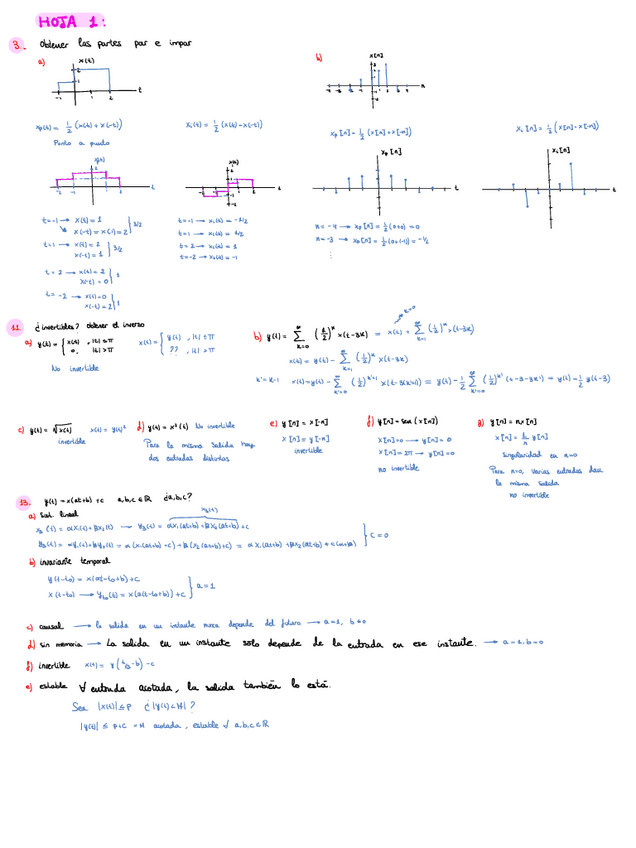 HOJA 1:
3. Obtener las partes par e impar
a) x(t)
b) x[n]
xp(t) = 1/2 (x(t) + x(-t))
xi(t) = 1/2 (x(t) - x(-t))
xp[n] = 1/2 (x[n] + x[-n])
xi[n] = 1/2 (x[n] - x[-n])
Punto a punto
xp[n]
xi[n]
t=-1 → x(t) = 1
x(-t) = x(1) = 2 } 3/2
t=-1 → xi(t) = -1/2
t=1 → xi(t) = 1/2
t=2 → xi(t) = 1
t=-2 → xi(t) = -1
n=-4 → xp[n] = 1/2 (0+0) = 0
n=-3 → xp[n] = 1/2 (0+(-1)) = -1/2
t=-2 → x(t) = 0
x(-t) = 2 } 1
11. ¿invertibles? obtener el inverso
a) y(t) = { x(t), |t| ≤ π
0, |t| > π
x(t) = { y(t), |t| ≤ π
??, |t| > π
No invertible
b) y(t) = ∑ k=0 ∞ (1/2)^k x(t-3k) = x(t) + ∑ k=1 ∞ (1/2)^k x(t-3k)
k=0
x(t) = y(t) - ∑ k=1 ∞ (1/2)^k x(t-3k)
k' = k-1 x(t) = y(t) - ∑ k'=0 ∞ (1/2)^k'+1 x(t-3(k'+1)) = y(t) - 1/2 ∑ k'=0 ∞ (1/2)^k' (t-3-3k') = y(t) - 1/2 y(t-3)
c) y(t) = √x(t) x(t) = y(t)²
invertible
d) y(t) = x²(t) No invertible
Para la misma salida hay
dos entradas distintas
e) y[n] = x[-n]
x[n] = y[-n]
invertible
f) y[n] = sen(x[n])
x[n]=0 → y[n] = 0
x[n]=2π → y[n]=0
no invertible
g) y[n] = n x[n]
x[n] = 1/n y[n]
Singularidad en n=0
Para n=0, varias entradas dan
la misma salida
no invertible
13. y(t) = x(at+b) + c a,b,c ∈ ℝ ¿a,b,c?
a) Sist. lineal
x3(t)
x3(t) = αx1(t) + βx2(t) → y3(t) = αx1(at+b) + βx2(at+b) + c
y3(t) = αy1(t) + βy2(t) = α(x1(at+b) + c) + β(x2(at+b) + c) = αx1(at+b) + βx2(at+b) + c(α+β) } c=0
b) invariante temporal
y(t-t0) = x(at-t0+b) + c
x(t-t0) → yt0(t) = x(a(t-t0+b)) + c } a=1
c) causal → la salida en un instante nunca depende del futuro → a=1, b≤0
d) sin memoria → La salida en un instante solo depende de la entrada en ese instante. → a=1, b=0
f) invertible
e) estable ∀ entrada acotada, la salida también lo está.
Sea |x(t)| ≤ P ¿|y(t)| < M|?
|y(t)| ≤ P+C = M acotada, estable ∀ a,b,c ∈ ℝ